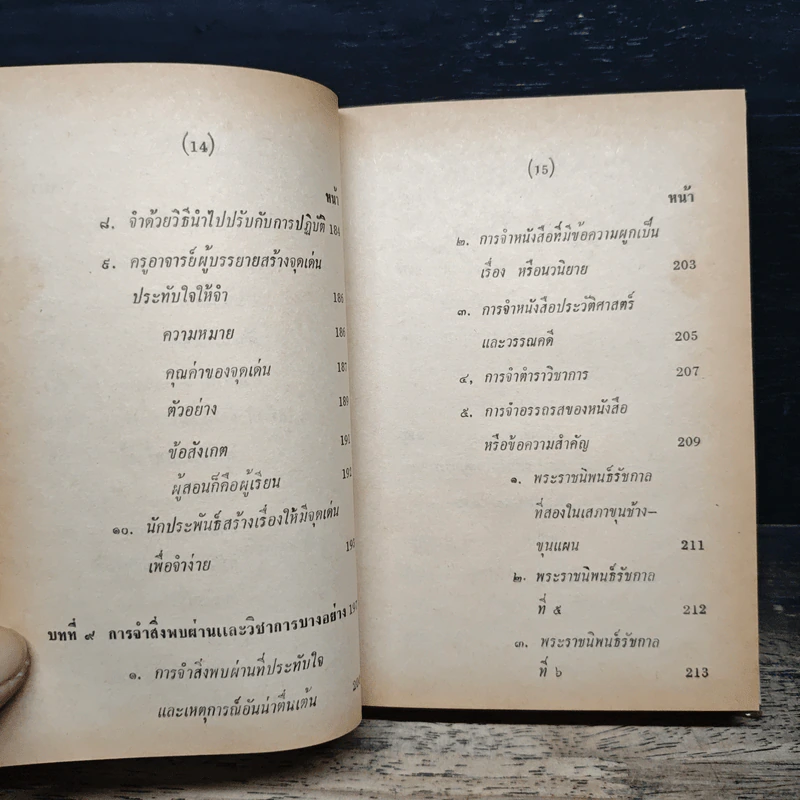 (14)
หน้า
๘. จำด้วยวิธีนำไปปรับกับการปฏิบัติ 184
๙. ครูอาจารย์ผู้บรรยายสร้างจุดเด่น
ประทับใจให้จำ 186
ความหมาย 186
คุณค่าของจุดเด่น 187
ตัวอย่าง 189
ข้อสังเกต 191
ผู้สอนก็คือผู้เรียน 192
๑๐. นักประพันธ์สร้างเรื่องให้มีจุดเด่น
เพื่อจำง่าย
บทที่ ๙ การจำสิ่งพบผ่านและวิชาการบางอย่าง
๑. การจำสิ่งพบผ่านที่ประทับใจ
และเหตุการณ์อันน่าตื่นเต้น
(15)
หน้า
๒. การจำหนังสือที่มีข้อความผูกเป็น
เรื่อง หรือนวนิยาย 203
๓. การจำหนังสือประวัติศาสตร์
และวรรณคดี 205
๔, การจำตำราวิชาการ 207
๕. การจำอรรถรสของหนังสือ
หรือข้อความสำคัญ 209
๑. พระราชนิพนธ์รัชกาล
ที่สองในเสภาขุนช้าง-
ขุนแผน 211
๒. พระราชนิพนธ์รัชกาล
ที่ ๕ 212
๓. พระราชนิพนธ์รัชกาล
ที่ ๖ 213